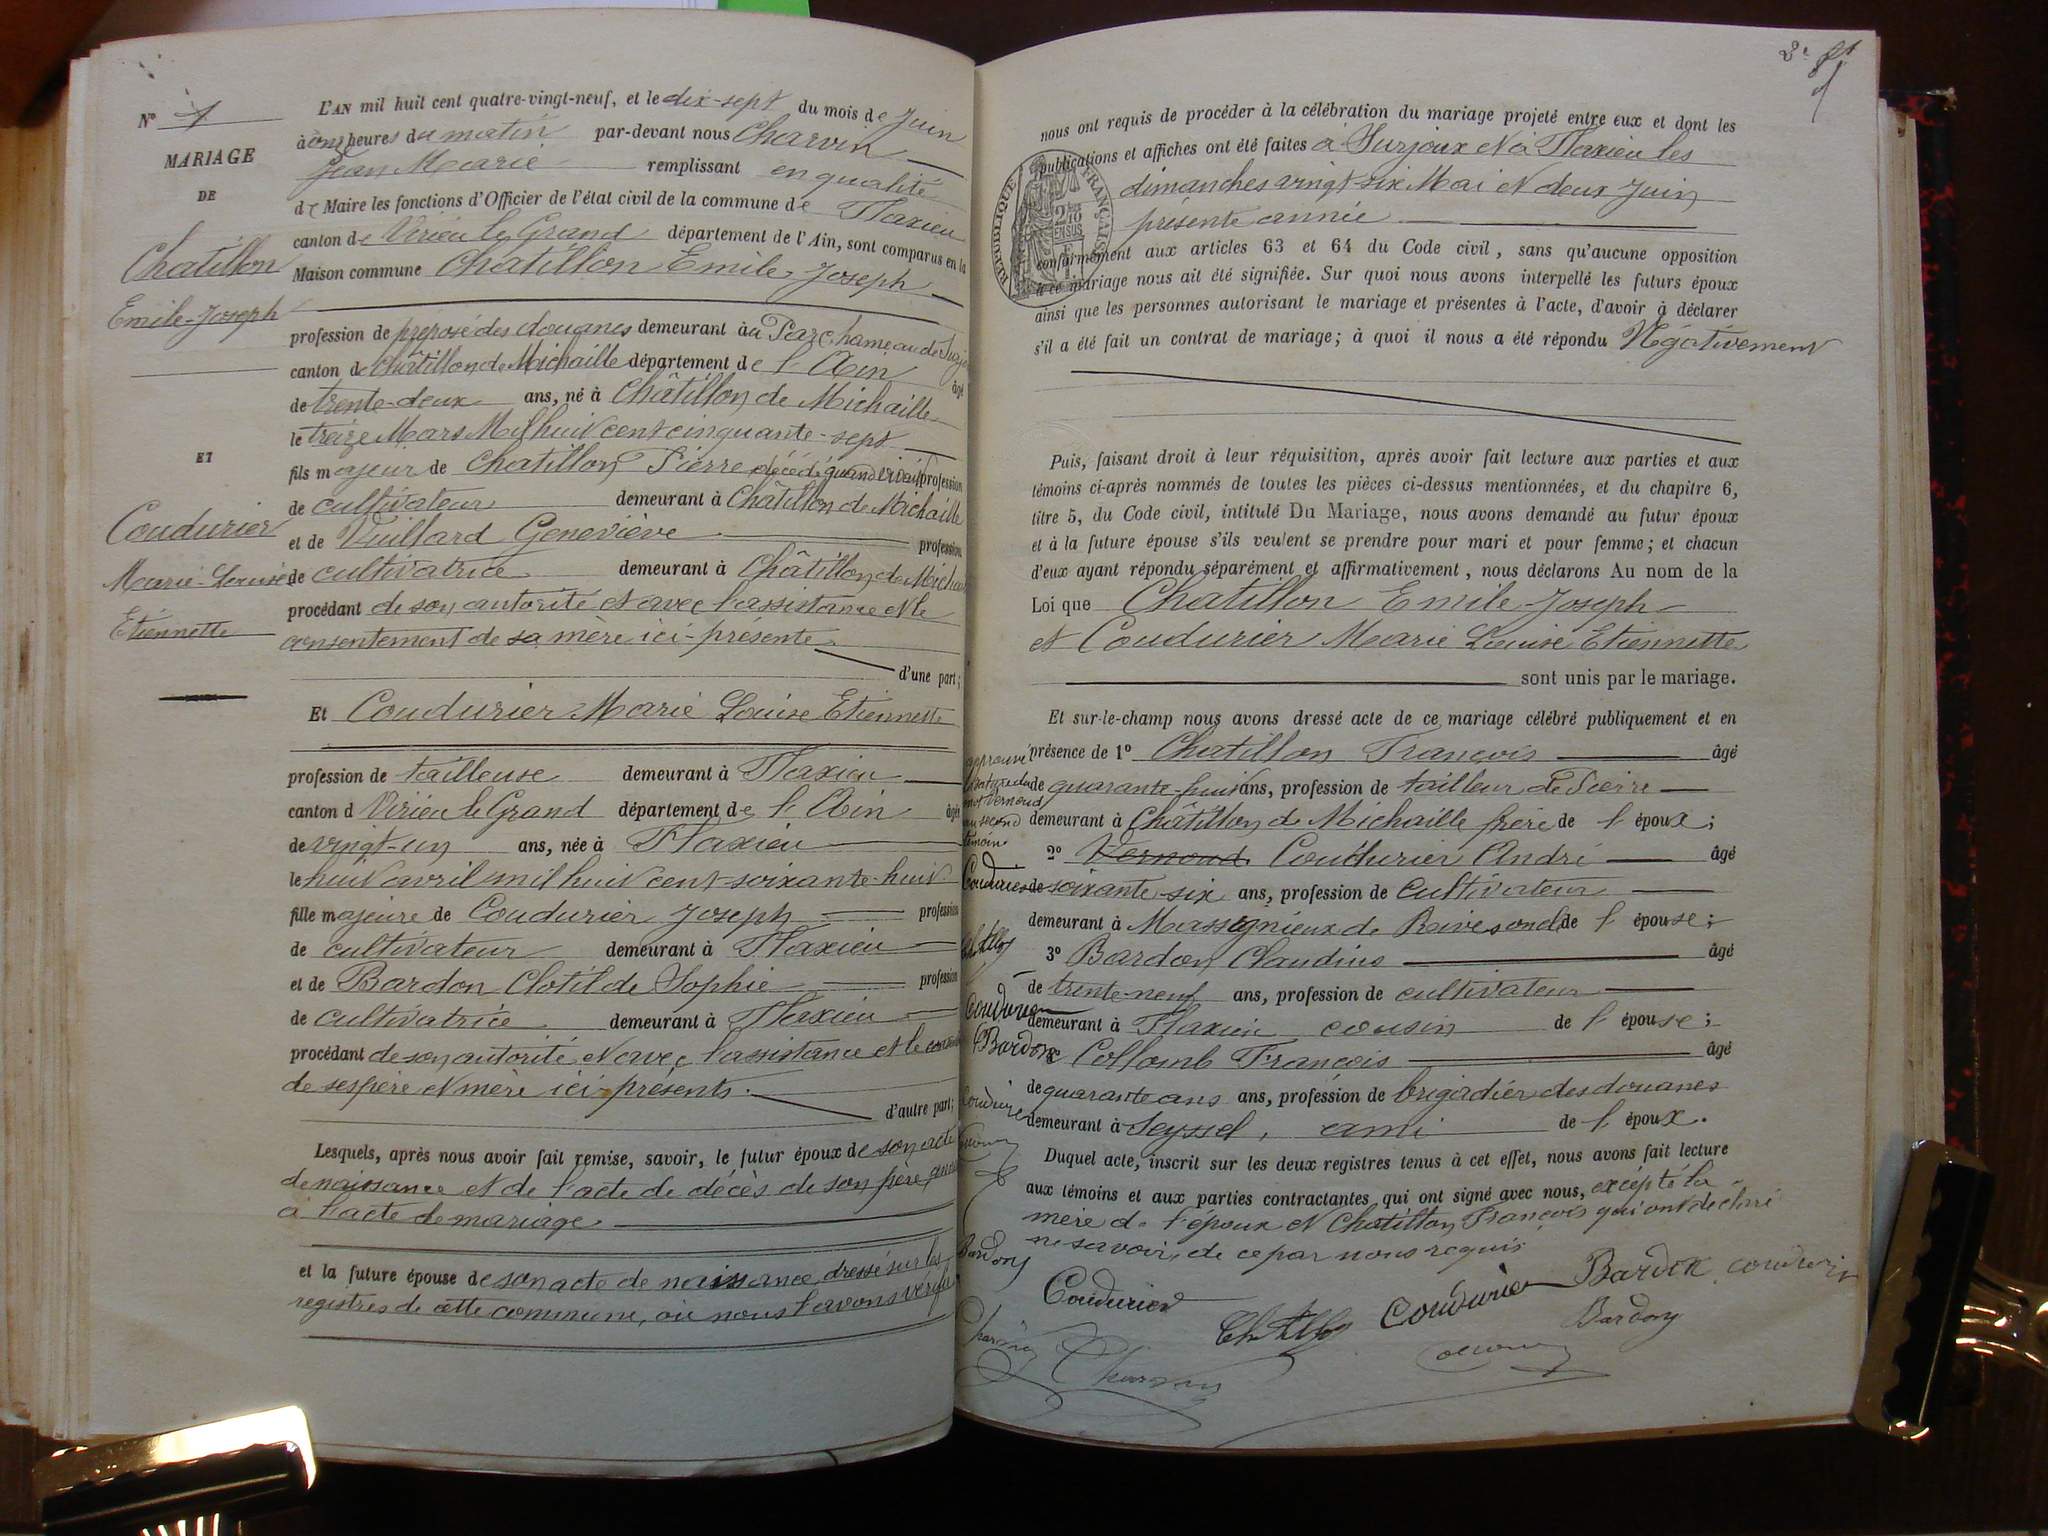 N° 1
MARIAGE
DE
Chatillon
Emile-Joseph
ET
Coudurier
Marie-Louise
Etiennette
L'AN mil huit cent quatre-vingt-neuf, et le dix-sept du mois de Juin
à onze heures du matin par-devant nous Charvin
Jean Marie remplissant en qualité
de Maire les fonctions d'Officier de l'état civil de la commune de Flaxieu
canton de Virieu le Grand département de l'Ain, sont comparus en la
Maison commune Chatillon Emile Joseph
profession de préposé des douanes demeurant à au Parc, hameau de Surjoux
canton de Châtillon de Michaille département de l'Ain âgé
de trente-deux ans, né à Châtillon de Michaille
le treize Mars Mil huit cent cinquante-sept
fils majeur de Chatillon Pierre décédé quand vivait profession
de cultivateur demeurant à Châtillon de Michaille
et de Vuillard Geneviève profession
de cultivatrice demeurant à Châtillon de Michaille
procédant de son autorité et avec l'assistance et le
consentement de sa mère ici-présente
d'une part;
Et Coudurier Marie Louise Etiennette
profession de tailleuse demeurant à Flaxieu
canton d Virieu le Grand département de l'Ain âgée
de vingt-un ans, née à Flaxieu
le huit avril mil huit cent soixante-huit
fille majeure de Coudurier Joseph profession
de cultivateur demeurant à Flaxieu
et de Bardon Clotilde Sophie profession
de cultivatrice demeurant à Flaxieu
procédant de son autorité et avec l'assistance et le
de ses père et mère ici-présents.
d'autre part;
Lesquels, après nous avoir fait remise, savoir, le futur époux de son acte
de naissance et de l'acte de décès de son père,
à l'acte de mariage
et la future épouse de son acte de naissance dressé sur les
registres de cette commune, où nous l'avons vérifié
nous ont requis de procéder à la célébration du mariage projeté entre eux et dont les
publications et affiches ont été faites à Surjoux et à Flaxieu les
dimanches vingt-six Mai et deux Juin
présente année
RÉPUBLIQUE FRANÇAISE
conformément aux articles 63 et 64 du Code civil, sans qu'aucune opposition
à ce mariage nous ait été signifiée. Sur quoi nous avons interpellé les futurs époux
ainsi que les personnes autorisant le mariage et présentes à l'acte, d'avoir à déclarer
s'il a été fait un contrat de mariage; à quoi il nous a été répondu Négativement
Puis, faisant droit à leur réquisition, après avoir fait lecture aux parties et aux
témoins ci-après nommés de toutes les pièces ci-dessus mentionnées, et du chapitre 6,
titre 5, du Code civil, intitulé Du Mariage, nous avons demandé au futur époux
et à la future épouse s'ils veulent se prendre pour mari et pour femme; et chacun
d'eux ayant répondu séparément et affirmativement, nous déclarons Au nom de la
Loi que Chatillon Emile-Joseph
et Coudurier Marie Louise Etiennette
sont unis par le mariage.
Et sur-le-champ nous avons dressé acte de ce mariage célébré publiquement et en
présence de 1° Chatillon François âgé
de quarante-huit ans, profession de tailleur de Pierre
demeurant à Châtillon de Michaille frère de l'époux;
2° Vernoud Coudurier André âgé
de soixante-six ans, profession de cultivateur
demeurant à Massignieux de Rives oncle de l'épouse;
3° Bardon Claudius âgé
de trente-neuf ans, profession de cultivateur
demeurant à Flaxieu cousin de l'épouse;
Collomb François âgé
de quarante ans ans, profession de brigadier des douanes
demeurant à Seyssel, ami de l'époux.
Duquel acte, inscrit sur les deux registres tenus à cet effet, nous avons fait lecture
aux témoins et aux parties contractantes qui ont signé avec nous, excépté la
mère de l'époux et Chatillon François qui ont déclaré
ne savoir, de ce par nous requis
approuvé
la rature du
mot Vernoud
au second
témoin
Coudurier
Chatillon
Coudurier
Bardon
Coudurier
Bardon
Charvin
Coudurier Chatillon Coudurier Bardon Coudurier
Bardon
Charvin